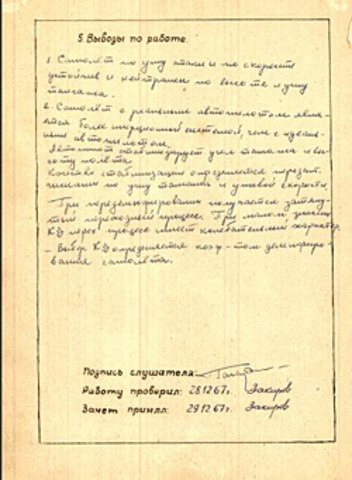 5. Выводы по работе.
1. Самолёт по углу атаки и по скорости
устойчив и нейтрален по высоте и углу
тангажа.
2. Самолёт с реальным автопилотом явля-
ется более инерционной системой, чем с идеаль-
ным автопилотом.
Автопилот стабилизирует угол тангажа и вы-
соту полёта.
Качество стабилизации определяется передат.
числами по углу тангажа и угловой скорости.
При передемпфировании получается затяну-
тый переходный процесс. При малом значении
перех. процесс имеет колебательный характер.
- Выбор определяется коэф-том демпфиро-
вания самолёта.
Подпись слушателя:
Работу проверил: 28.12.67г. Закиров
Зачет принял: 29.12.67г. Закиров